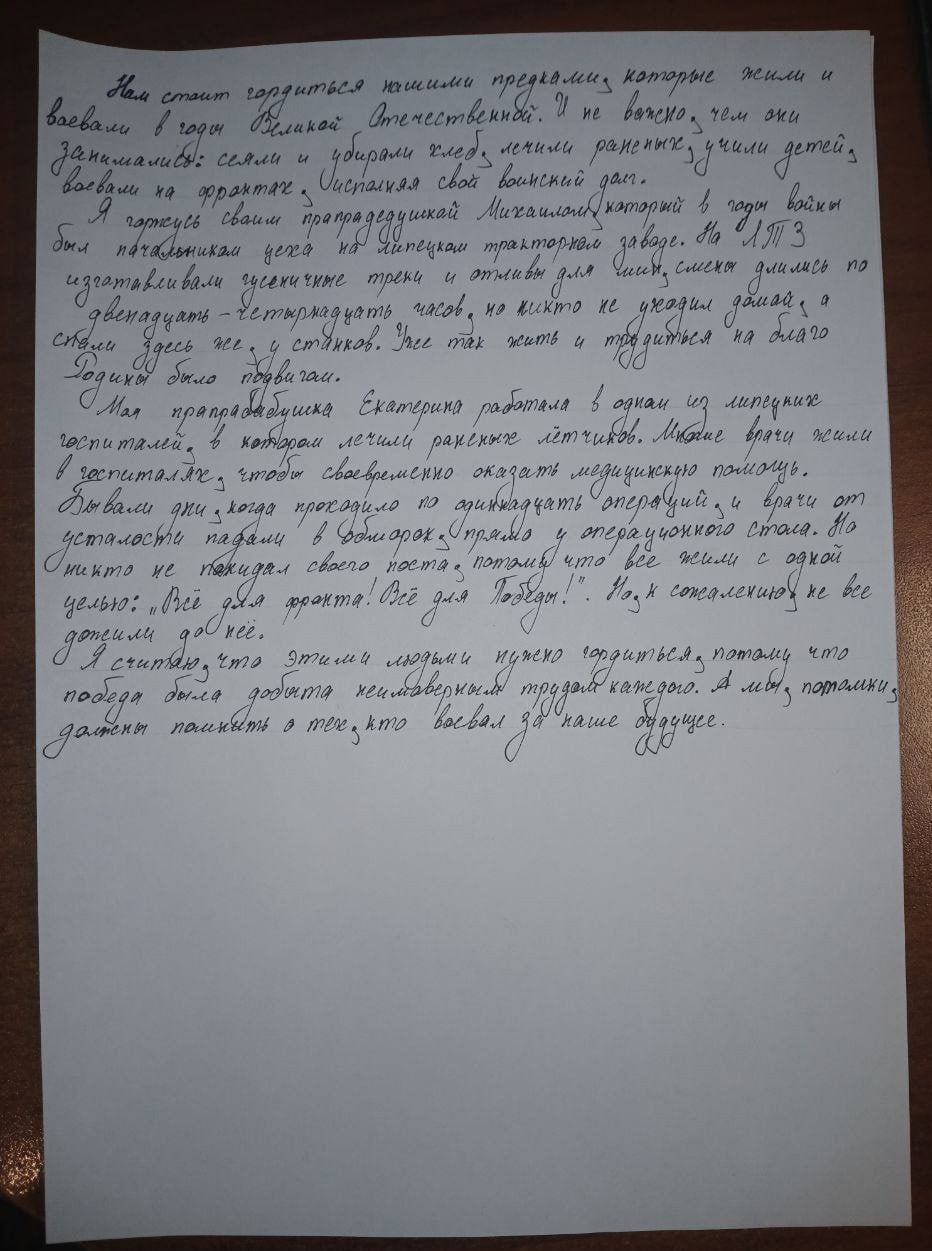 Нам стоит гордиться нашими предками, которые жили и
воевали в годы Великой Отечественной. И не важно, чем они
занимались: сеяли и убирали хлеб, лечили раненых, учили детей,
воевали на фронтах, исполняя свой воинский долг.
Я горжусь своим прапрадедушкой Михаилом, который в годы войны
был начальником цеха на липецком тракторном заводе. На ЛТЗ
изготавливали гусеничные треки и отливы для мин, смены длились по
двенадцать – четырнадцать часов, но никто не уходил домой, а
спали здесь же, у станков. Уже так жить и трудиться на благо
Родины было подвигом.
Моя прапрабабушка Екатерина работала в одном из липецких
госпиталей, в котором лечили раненых лётчиков. Многие врачи жили
в госпиталях, чтобы своевременно оказать медицинскую помощь.
Бывали дни, когда проходило по одиннадцать операций, и врачи от
усталости падали в обморок, прямо у операционного стола. Но
никто не покидал своего поста, потому что все жили с одной
целью: „Всё для фронта! Всё для Победы!". Но, к сожалению, не все
дожили до неё.
Я считаю, что этими людьми нужно гордиться, потому что
победа была добыта неимоверным трудом каждого. А мы, потомки,
должны помнить о тех, кто воевал за наше будущее.